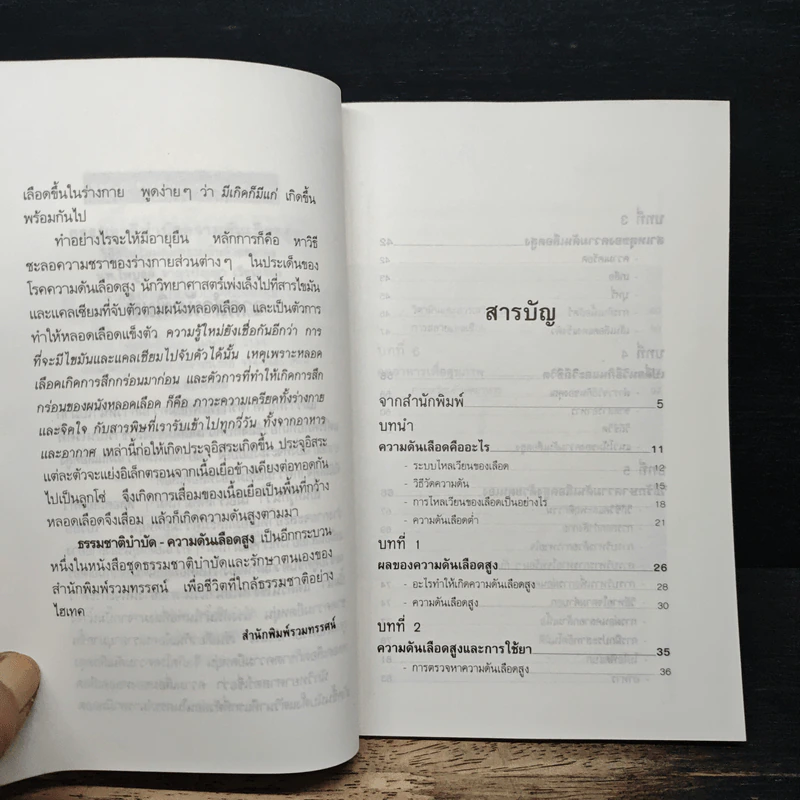 เลือดขึ้นในร่างกาย พูดง่ายๆ ว่า มีเกิดก็มีแก่ เกิดขึ้น
พร้อมกันไป
ทำอย่างไรจะให้มีอายุยืน หลักการก็คือ หาวิธี
ชะลอความชราของร่างกายส่วนต่างๆ ในประเด็นของ
โรคความดันเลือดสูง นักวิทยาศาสตร์เพ่งเล็งไปที่สารไขมัน
และแคลเซียมที่จับตัวตามผนังหลอดเลือด และเป็นตัวการ
ทำให้หลอดเลือดแข็งตัว ความรู้ใหม่ยังเชื่อกันอีกว่า การ
ที่จะมีไขมันและแคลเซียมไปจับตัวได้นั้น เหตุเพราะหลอด
เลือดเกิดการสึกกร่อนมาก่อน และตัวการที่ทำให้เกิดการสึก
กร่อนของผนังหลอดเลือด ก็คือ ภาวะความเครียดทั้งร่างกาย
และจิตใจ กับสารพิษที่เรารับเข้าไปทุกวี่วัน ทั้งจากอาหาร
และอากาศ เหล่านี้ก่อให้เกิดประจุอิสระเกิดขึ้น ประจุอิสระ
แต่ละตัวจะแย่งอิเล็กตรอนจากเนื้อเยื่อข้างเคียงต่อทอดกัน
ไปเป็นลูกโซ่ จึงเกิดการเสื่อมของเนื้อเยื่อเป็นพื้นที่กว้าง
หลอดเลือดจึงเสื่อม แล้วก็เกิดความดันสูงตามมา
ธรรมชาติบำบัด - ความดันเลือดสูง เป็นอีกกระบวน
หนึ่งในหนังสือชุดธรรมชาติบำบัดและรักษาตนเองของ
สำนักพิมพ์รวมทรรศน์ เพื่อชีวิตที่ใกล้ธรรมชาติอย่าง
ไฮเทค
สำนักพิมพ์รวมทรรศน์
สารบัญ
จากสำนักพิมพ์ 5
บทนำ
ความดันเลือดคืออะไร 11
- ระบบไหลเวียนของเลือด
- วิธีวัดความดัน 15
- การไหลเวียนของเลือดเป็นอย่างไร 18
- ความดันเลือดต่ำ 21
บทที่ 1
ผลของความดันเลือดสูง 26
- อะไรทำให้เกิดความดันเลือดสูง 28
- ความดันเลือดสูง 30
บทที่ 2
ความดันเลือดสูงและการใช้ยา 35
- การตรวจหาความดันเลือดสูง 36